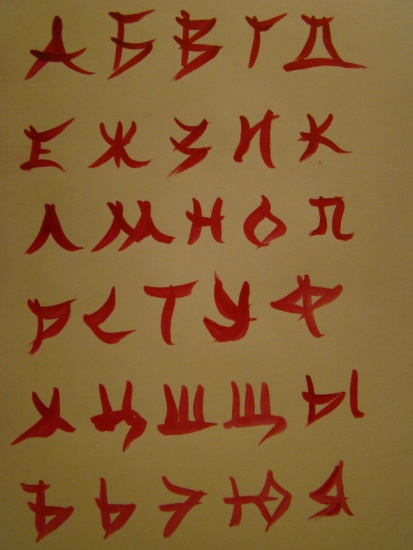 А Б В Г Д
Е Ж З И К
Л М Н О П
Р С Т У Ф
Х Ц Ш Щ Ы
Ъ Ь Э Ю Я